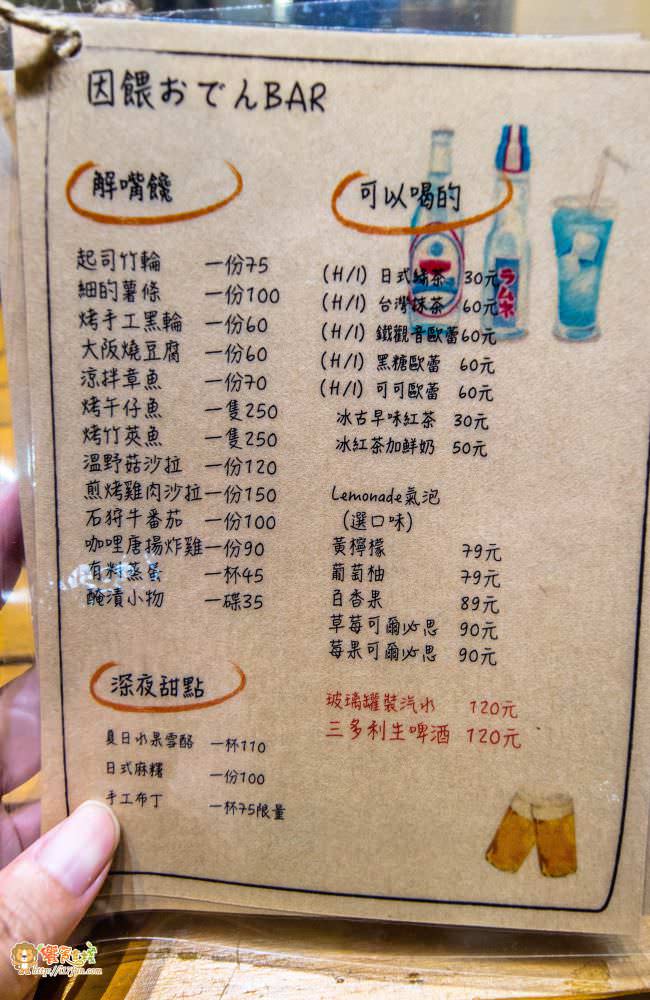 因餵おでんBAR
解嘴饞
起司竹輪 一份75
細的薯條 一份100
烤手工黑輪 一份60
大阪燒豆腐 一份60
涼拌章魚 一份70
烤午仔魚 一隻250
烤竹莢魚 一隻250
溫野菇沙拉 一份120
煎烤雞肉沙拉 一份150
石狩牛番茄 一份100
咖哩唐揚炸雞 一份90
有料蒸蛋 一杯45
醃漬小物 一碟35
深夜甜點
夏日水果雪酪 一杯110
日式麻糬 一份100
手工布丁 一杯75限量
可以喝的
(H/I) 日式綠茶 30元
(H/I) 台灣抹茶 60元
(H/I) 鐵觀音歐蕾 60元
(H/I) 黑糖歐蕾 60元
(H/I) 可可歐蕾 60元
冰古早味紅茶 30元
冰紅茶加鮮奶 50元
Lemonade氣泡
(選口味)
黃檸檬 79元
葡萄柚 79元
百香果 89元
草莓可爾必思 90元
莓果可爾必思 90元
玻璃罐裝汽水 120元
三多利生啤酒 120元
ラムネ